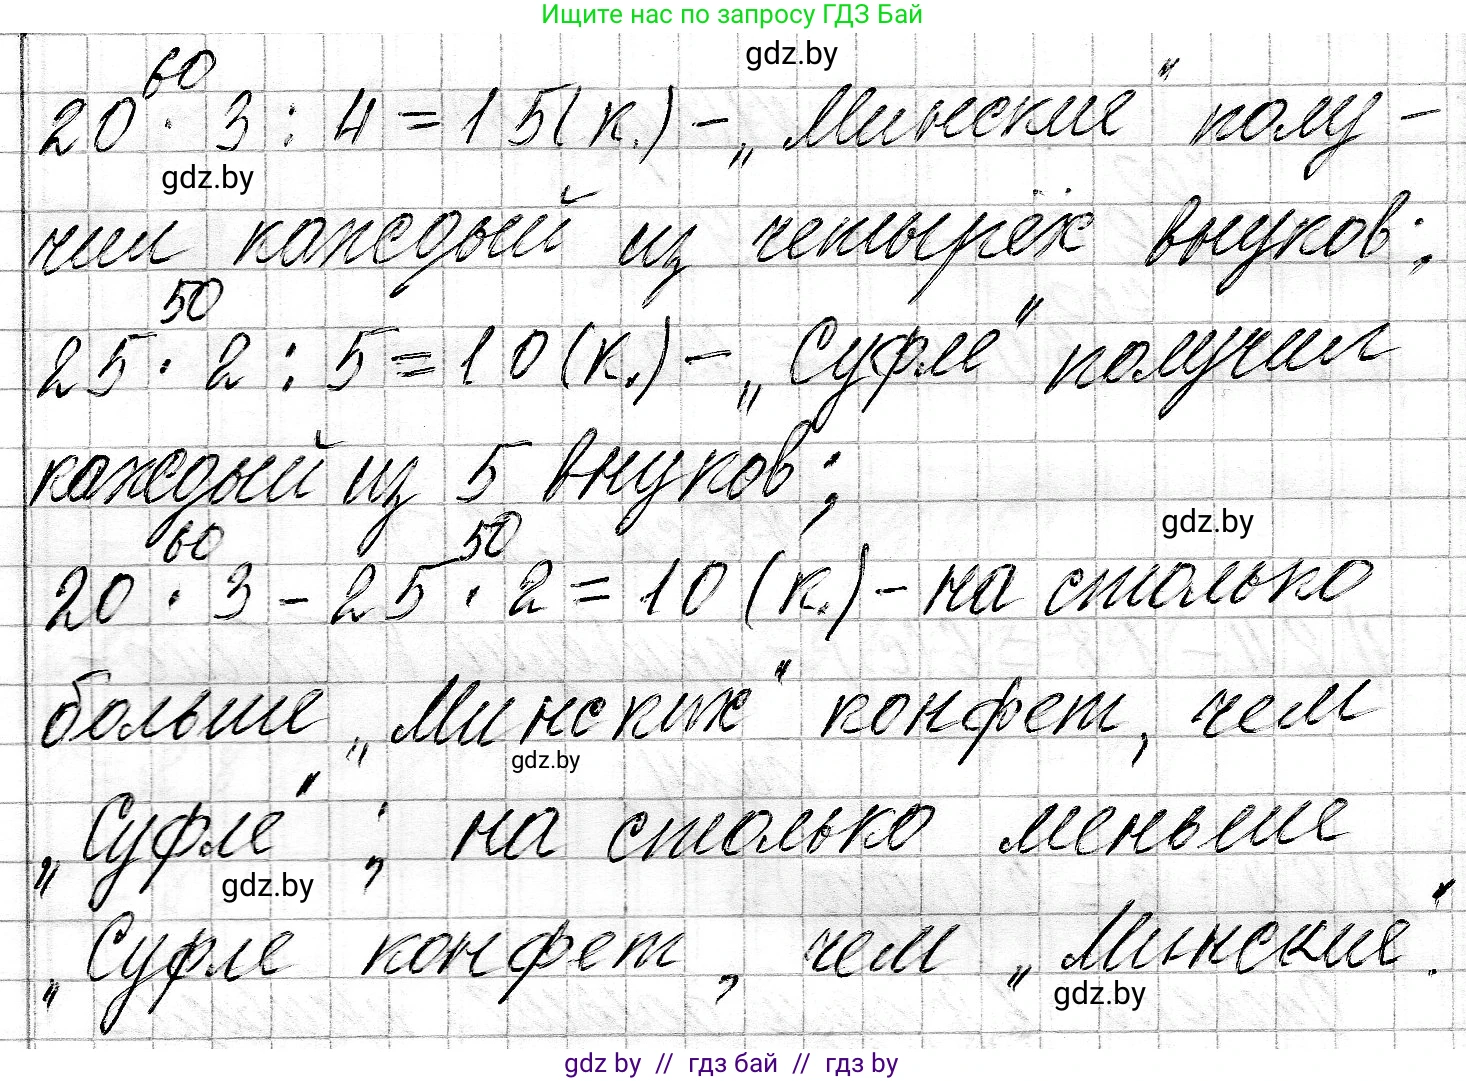 Ищите нас по запросу ГДЗ Бай
gdz.by
60
20 · 3 : 4 = 15 (к.) – „Минские“ полу-
gdz.by
чил каждый из четырёх внуков;
50
25 · 2 : 5 = 10 (к.) – „Суфле“ получил
каждый из 5 внуков;
gdz.by
60 50
20 · 3 – 25 · 2 = 10 (к.) – на столько
больше „Минских“ конфет, чем
gdz.by
„Суфле“; на столько меньше
gdz.by
„Суфле конфет, чем „Минские“.
gdz.by
gdz by // гдз бай // гдз by